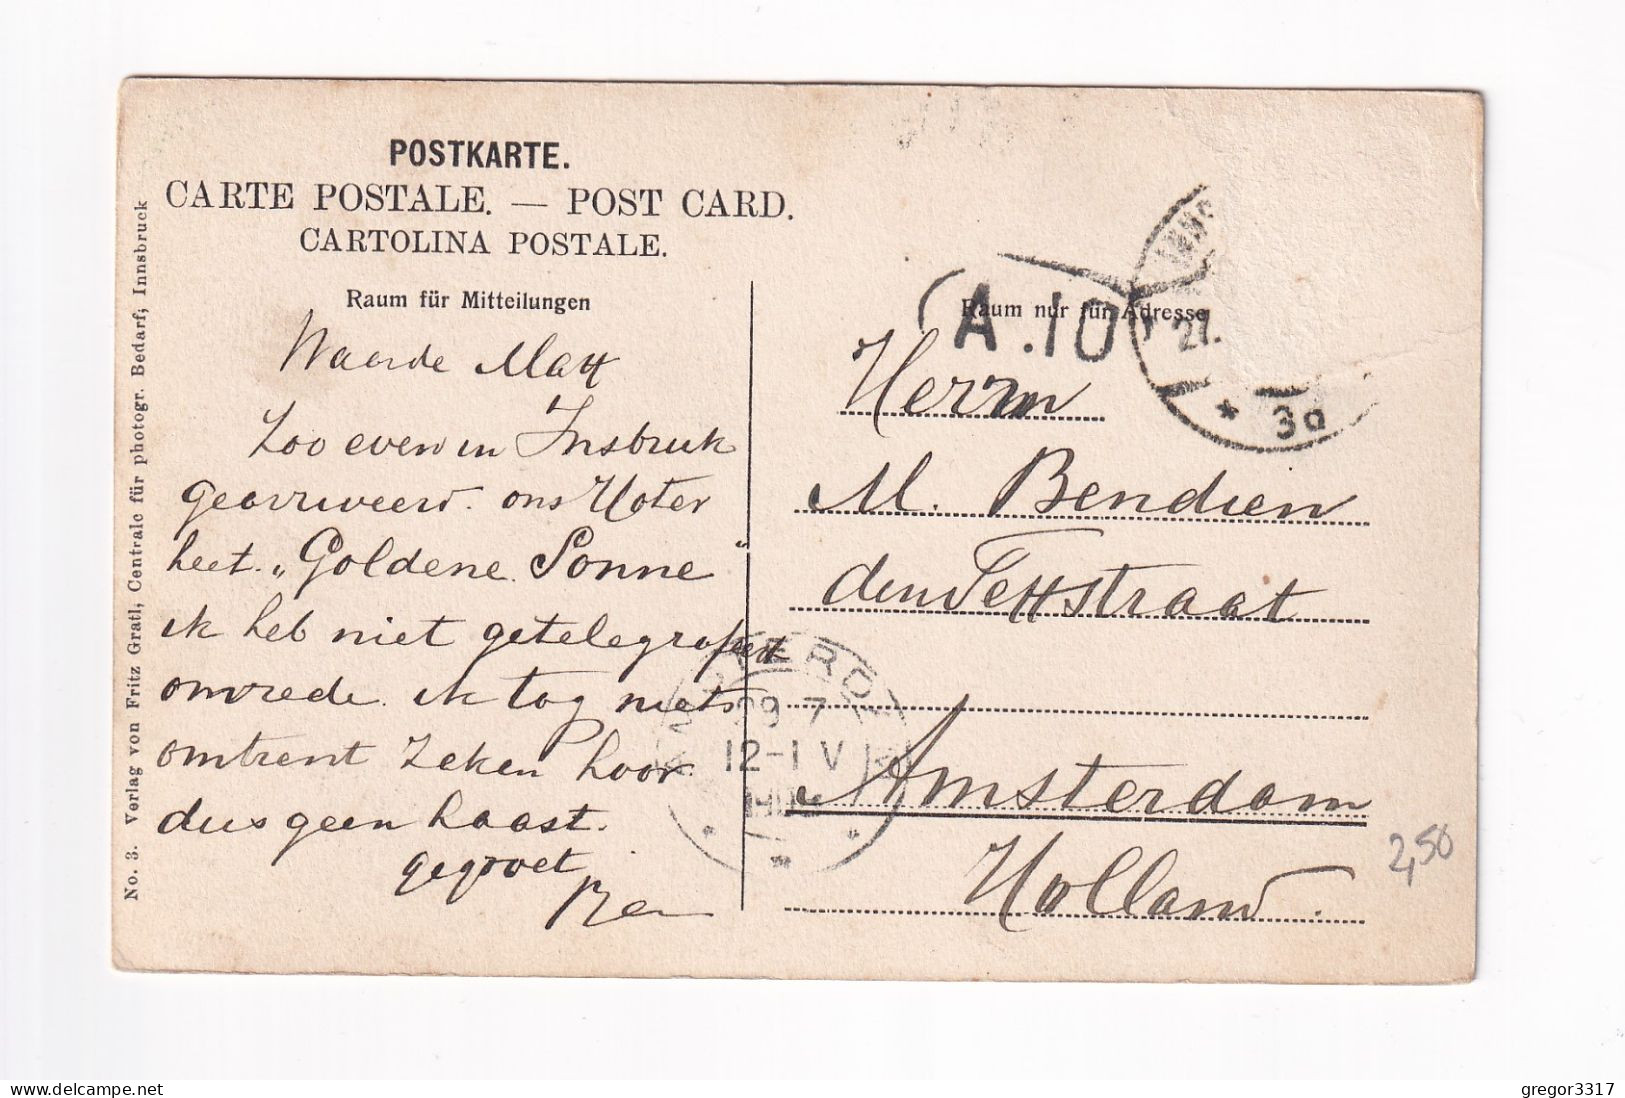 POSTKARTE.
CARTE POSTALE. — POST CARD.
CARTOLINA POSTALE.
Raum für Mitteilungen
Waarde Matt
Zoo even in Insbruck
gearriveerd. ons Hoter
heet „Goldene Sonne“
ik heb niet getelegrafeerd
omrede ik tog niets
omtrent zeken hoor
dus geen haast.
gegroet
Ben
No. 3. Verlag von Fritz Gratl, Centrale für photogr. Bedarf, Innsbruck
Raum nur für Adresse
A.10
27.
* 3a
Herrn
M. Bendien
den Texstraat
Amsterdam
Holland.
AMSTERDAM
29 7
12-1 V
2,50
gregor3317